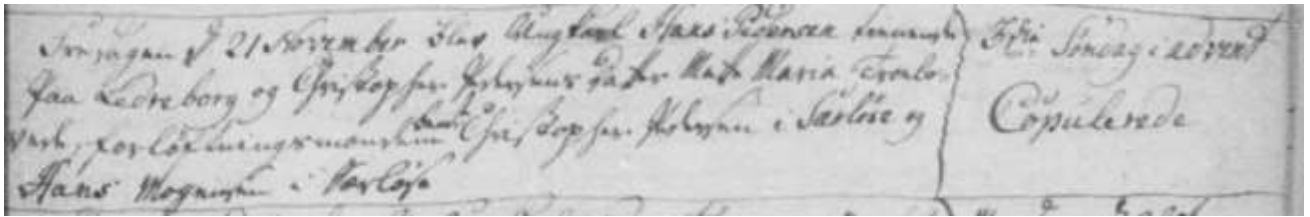 Fredagen d 21 November blev Ungkarl Hans Pedersen tienende
Paa Ledreborg og Christopher Pedersens Dater Mette Maria Troelo-
vede, forlofningsmændene Christopher Pedersen i Særløse og
Hans Mogensen i Særløse
Søndag i advent
Copulerede